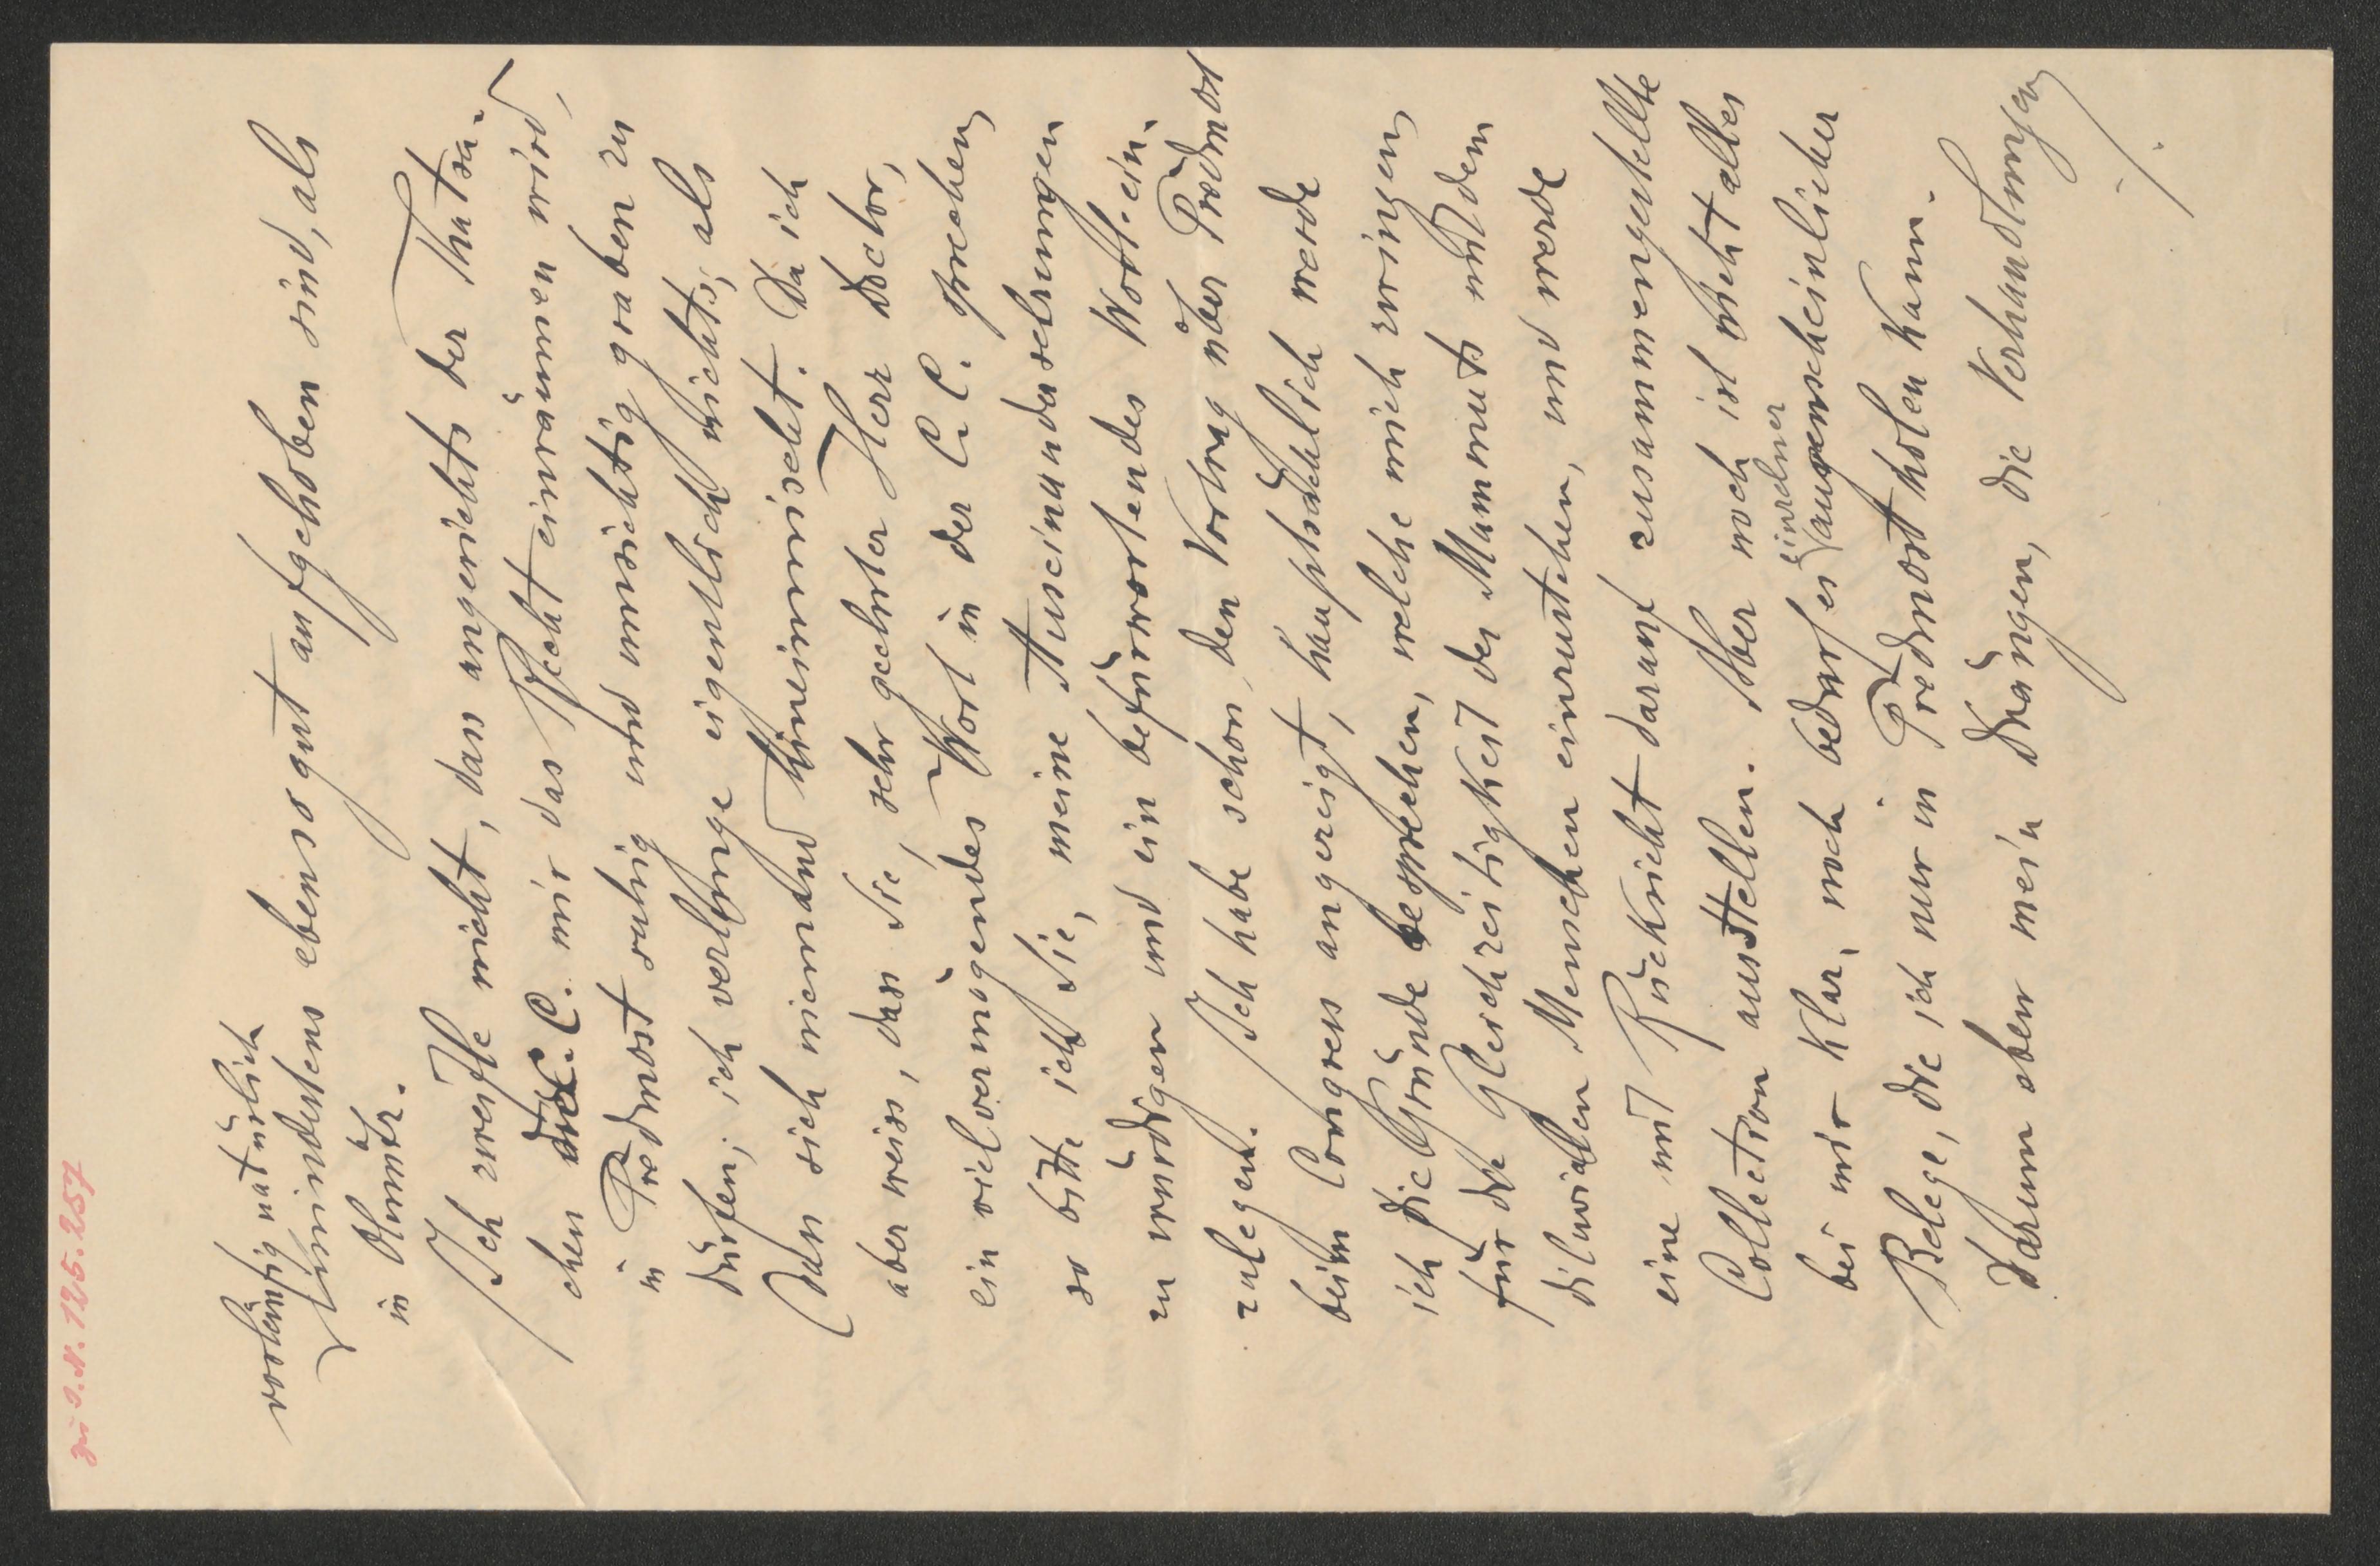 zu I.N. 125.257
vorläufig natürlich
mindestens ebenso gut aufgehoben sind, als
in Olmütz.
Ich zweifle nicht, dass angesichts der Thatsa-
chen die C. C. mir das Recht einräumen wird,
in Předmost ruhig und umsichtig graben zu
dürfen; ich verlange eigentlich nichts, als
dass sich niemand hineinmischt. Da ich
aber weiss, dass Sie, sehr geehrter Herr Doctor,
ein vielvermögendes Wort in der C. C. sprechen,
so bitte ich Sie, meine Auseinandersetzungen
zu würdigen und ein befürwortendes Wort ein-
zulegen. Ich habe schon den Vortrag über Předmost
beim Congress angezeigt, hauptsächlich werde
ich die Gründe besprechen, welche mich zwingen
für die Gleichzeitigkeit des Mammuts mit dem
diluvialen Menschen einzustehen, und werde
eine mit Rücksicht darauf zusammengestellte
Collection ausstellen. Aber noch ist nicht alles
bei mir klar, noch bedarf es einzelner augenscheinlicher
Belege, die ich nur in Předmost holen kann.
Darum eben mein Drängen, die Verhandlungen
./.